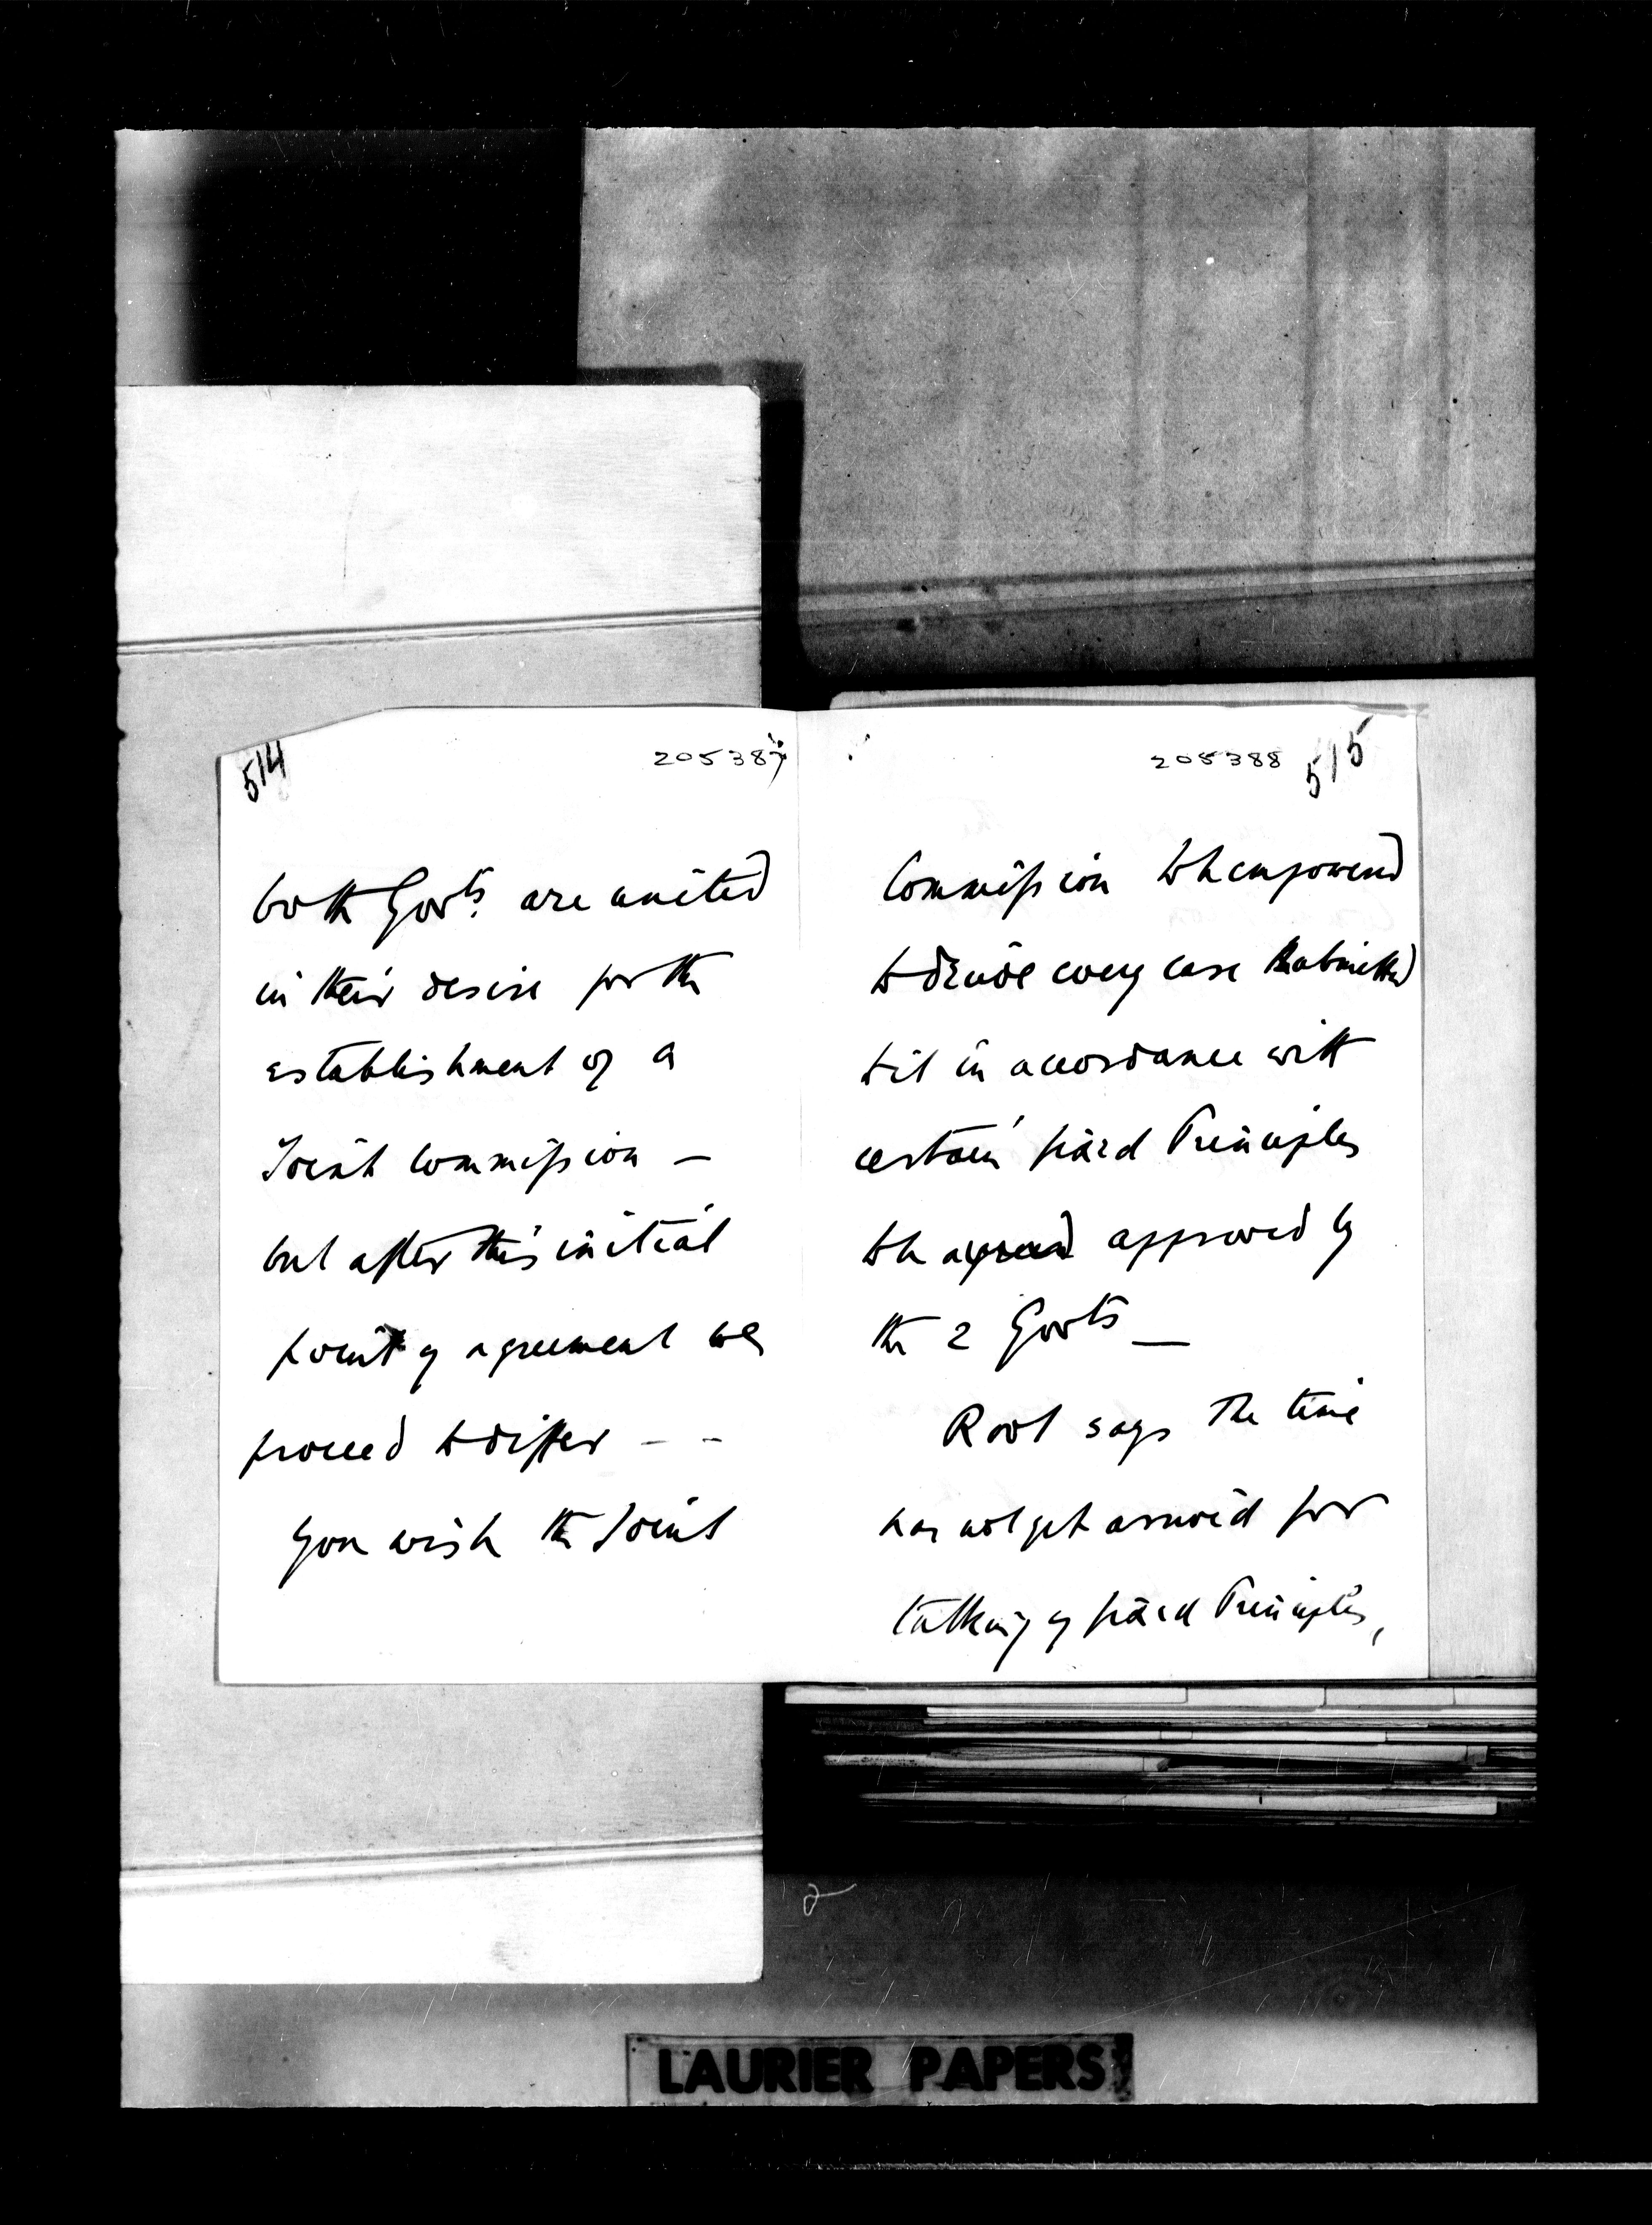 514
205387
both Govts. are united
in their desire for the
establishment of a
Joint Commission —
but after this initial
point of agreement we
proceed to differ - -
You wish the Joint
205388
515
Commission to be empowered
to decide every case submitted
to it in accordance with
certain fixed Principles
to be agreed approved by
the 2 Govts —
Root says the time
has not yet arrived for
talking of fixed Principles,
2
LAURIER PAPERS